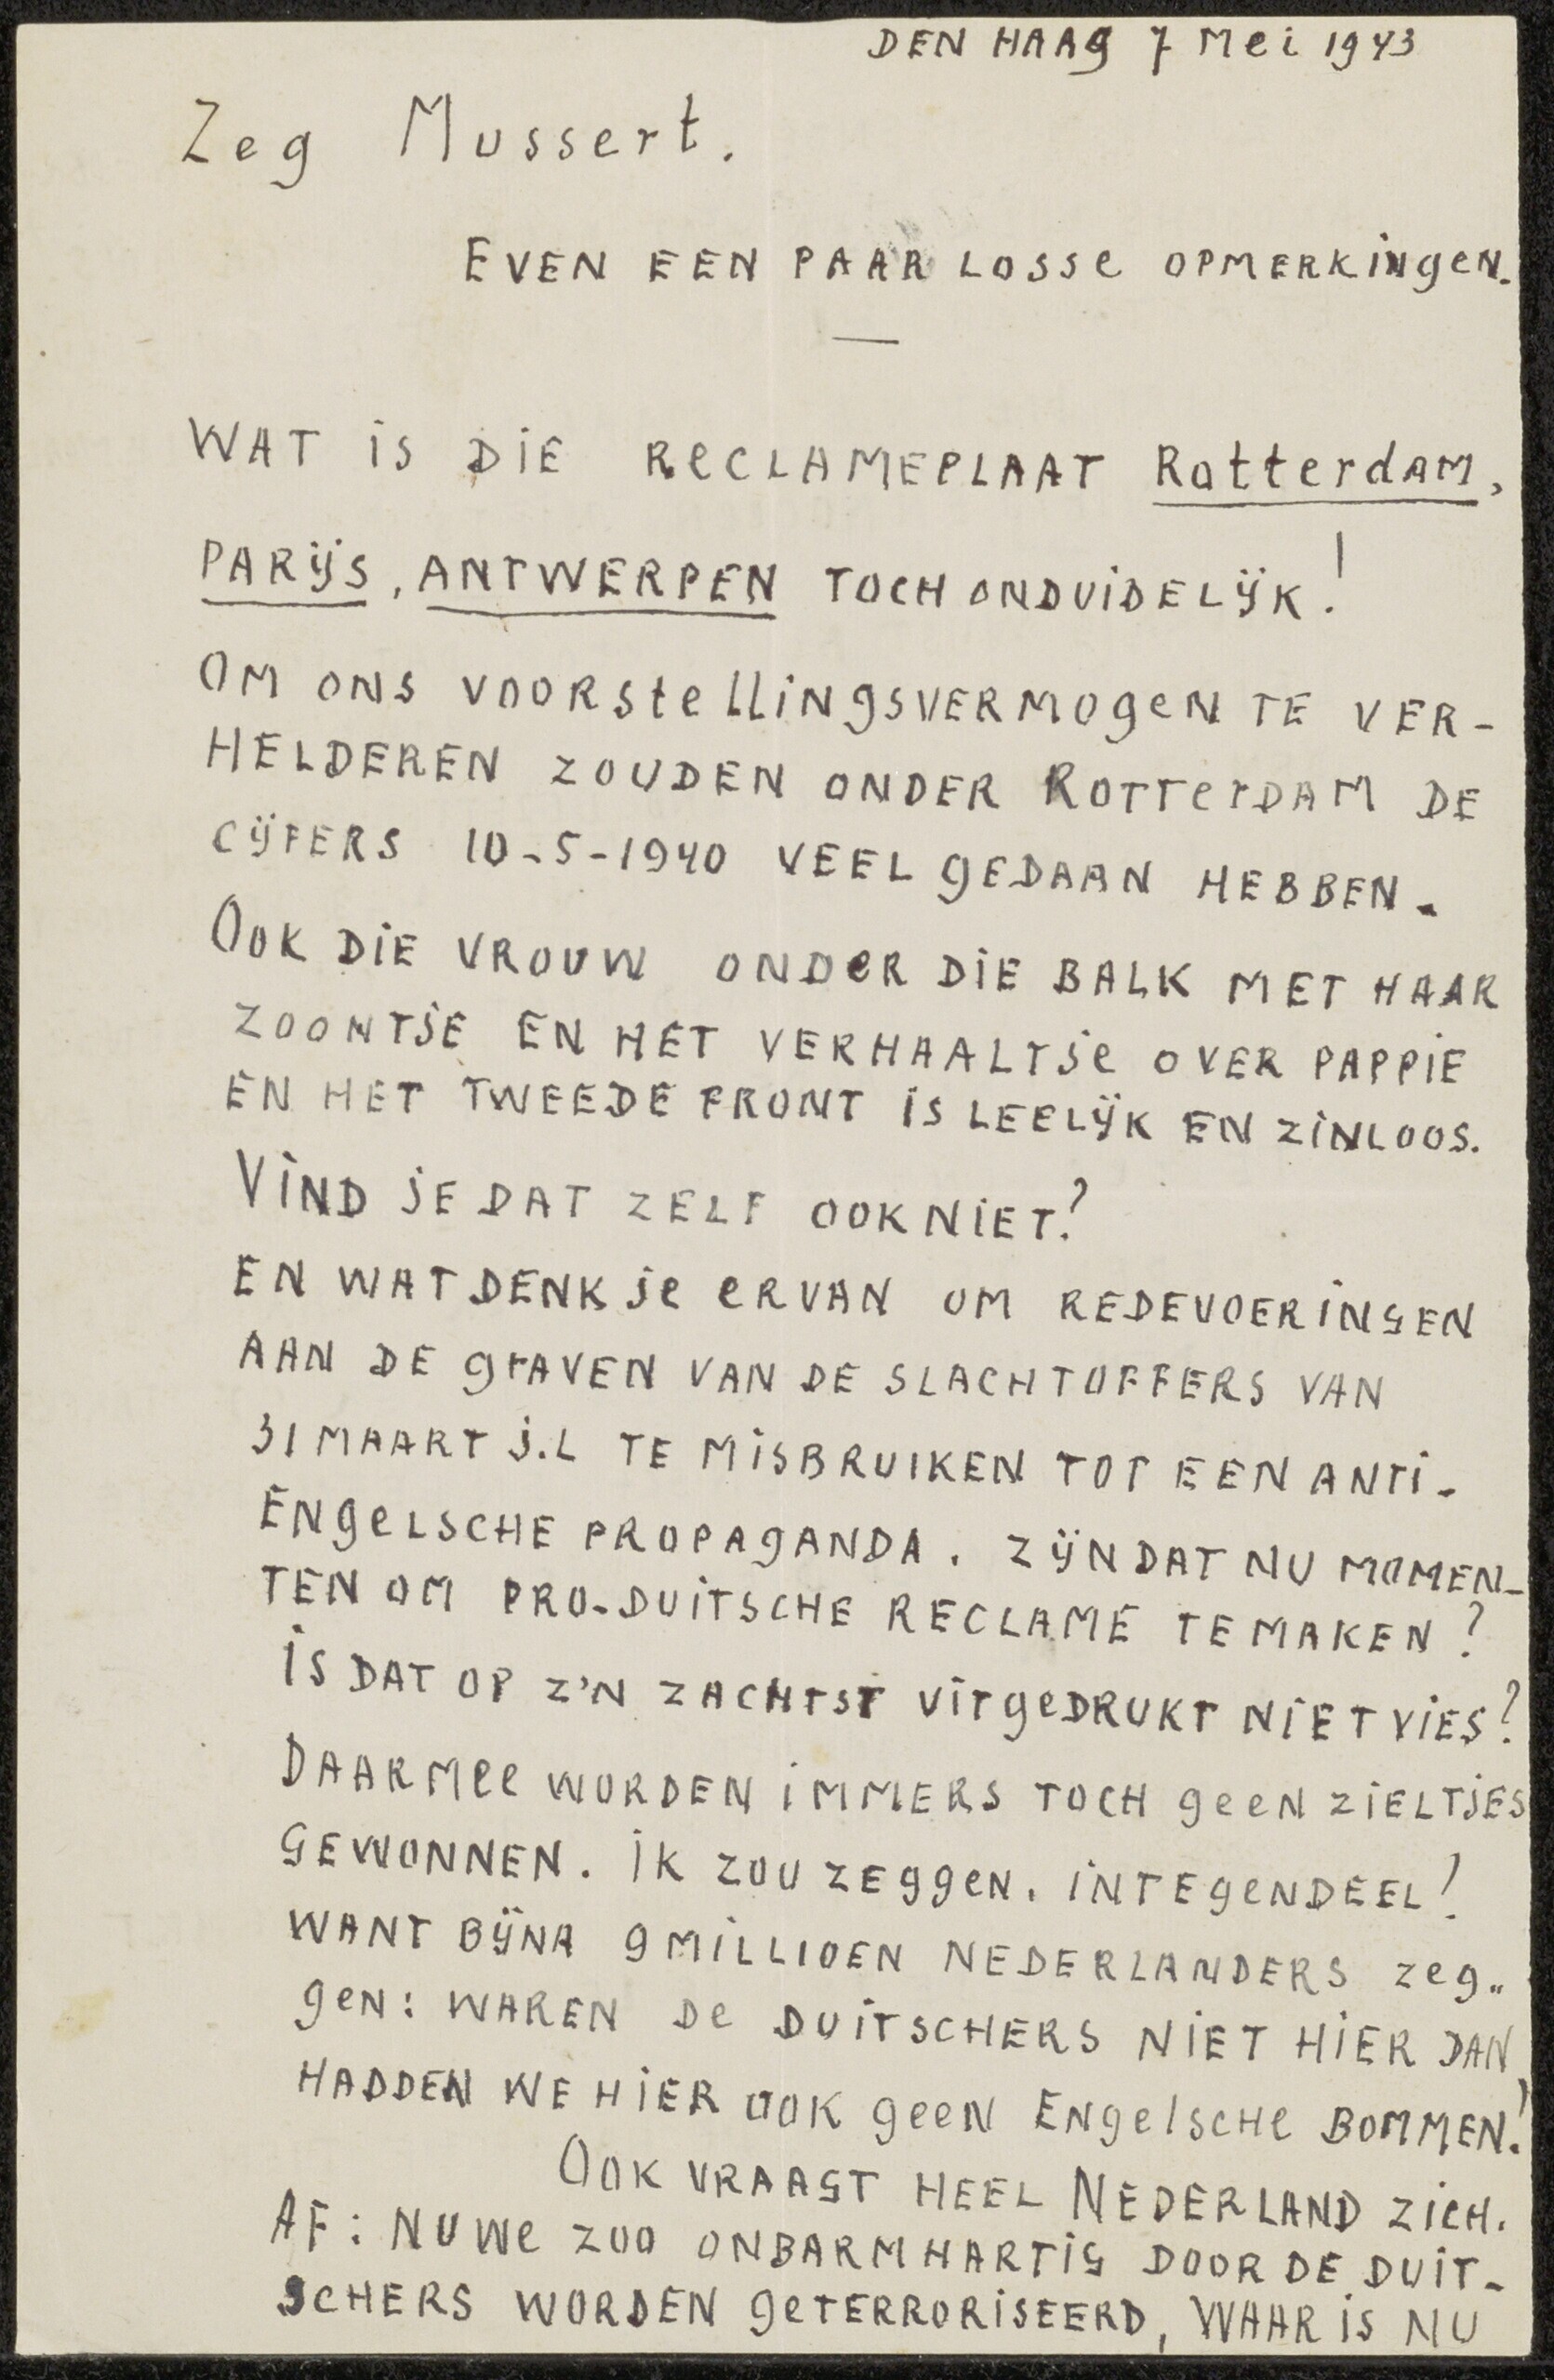 DEN HAAG 7 Mei 1943
Zeg Mussert.
EVEN EEN PAAR LOSSE OPMERKINGEN.
—
WAT IS DIE RECLAMEPLAAT Rotterdam,
PARIJS, ANTWERPEN TOCH ONDUIDELIJK!
OM ONS VOORSTELLINGSVERMOGEN TE VER-
HELDEREN ZOUDEN ONDER ROTTERDAM DE
CIJFERS 10-5-1940 VEEL GEDAAN HEBBEN.
OOK DIE VROUW ONDER DIE BALK MET HAAR
ZOONTJE EN HET VERHAALTJE OVER PAPPIE
EN HET TWEEDE FRONT IS LEELIJK EN ZINLOOS.
VIND JE DAT ZELF OOK NIET?
EN WAT DENK JE ERVAN OM REDEVOERINGEN
AAN DE GRAVEN VAN DE SLACHTOFFERS VAN
31 MAART J.L TE MISBRUIKEN TOT EEN ANTI-
ENGELSCHE PROPAGANDA. ZIJN DAT NU MOMEN-
TEN OM PRO-DUITSCHE RECLAME TE MAKEN?
IS DAT OP Z'N ZACHTST UITGEDRUKT NIET VIES?
DAARMEE WORDEN IMMERS TOCH GEEN ZIELTJES
GEWONNEN. IK ZOU ZEGGEN. INTEGENDEEL!
WANT BIJNA 9 MILLIOEN NEDERLANDERS ZEG-
GEN: WAREN DE DUITSCHERS NIET HIER DAN
HADDEN WE HIER OOK GEEN ENGELSCHE BOMMEN!
OOK VRAAGT HEEL NEDERLAND ZICH.
AF: NU WE ZOO ONBARMHARTIG DOOR DE DUIT-
SCHERS WORDEN GETERRORISEERD, WAAR IS NU